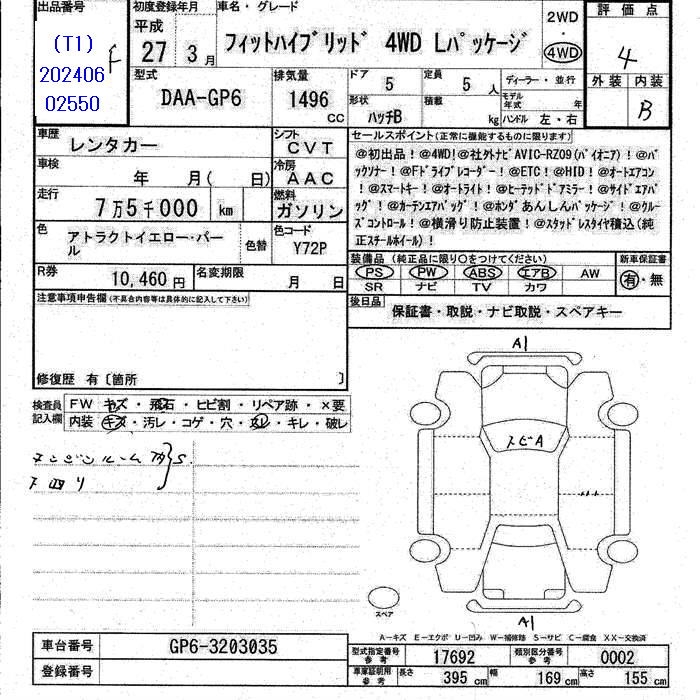 出品番号
(T1)
202406
02550
F
初度登録年月
平成
27 3 月
車名・グレード
フィットハイブリッド 4WD Lパッケージ
2WD
・
4WD
評価点
4
外装 内装
B
型式
DAA-GP6
排気量
1496
CC
ドア
5
定員
5 人
ディーラー・並行
形状
ハッチB
積載
kg
モデル年式 年
ハンドル 左・右
車歴
レンタカー
シフト
CVT
車検
年 月( 日)
冷房
AAC
走行
7万5千000 km
燃料
ガソリン
色
アトラクトイエロー・パール
色替
色コード
Y72P
R券
10,460 円
名変期限
月 日
セールスポイント(正常に機能するものに限ります)
@初出品!@4WD!@社外ナビAVIC-RZ09(パイオニア)!@バ
ックソナー!@Fドライブレコーダー!@ETC!@HID!@オートエアコン
!@スマートキー!@オートライト!@ヒーテッドドアミラー!@サイドエアバ
ッグ!@カーテンエアバッグ!@ホンダあんしんパッケージ!@クルー
ズコントロール!@横滑り防止装置!@スタッドレスタイヤ積込(純
正スチールホイール)!
装備品(純正品に限り〇をつけてください)
PS PW ABS エアB AW
SR ナビ TV カワ
新車保証書
有・無
後日品
保証書・取説・ナビ取説・スペアキー
注意事項申告欄(不具合内容等は具体的に記入して下さい)
修復歴 有〔箇所 〕
検査員
記入欄
FW キズ・飛石・ヒビ割・リペア跡・×要
内装 キズ・汚レ・コゲ・穴・スレ・キレ・破レ
エンジンルーム内
下回り
S.
A1
スビA
A1
スペア
A-キズ E-エクボ U-凹み W-補修跡 S-サビ C-腐食 XX-交換済
車台番号
GP6-3203035
登録番号
型式指定番号
参考
17692
類別区分番号
参考
0002
車庫証明用
参考
長さ
395 cm
幅
169 cm
高さ
155 cm